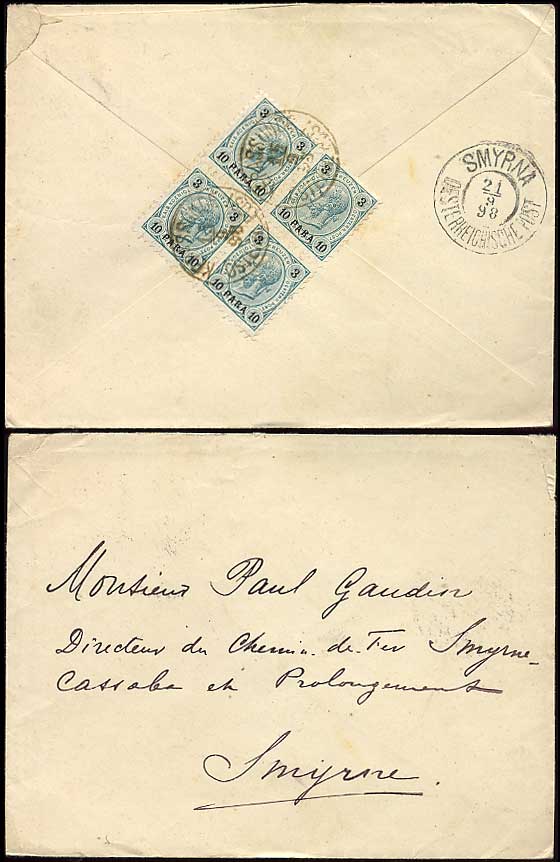 3 3
10 PARA 10
3 3
10 PARA 10
3 3
10 PARA 10
3 3
10 PARA 10
SMYRNA
21
9
98
OESTERREICHISCHE POST
Monsieur Paul Gaudin
Directeur du Chemin de Fer Smyrne-
Cassaba et Prolongement
Smyrne.